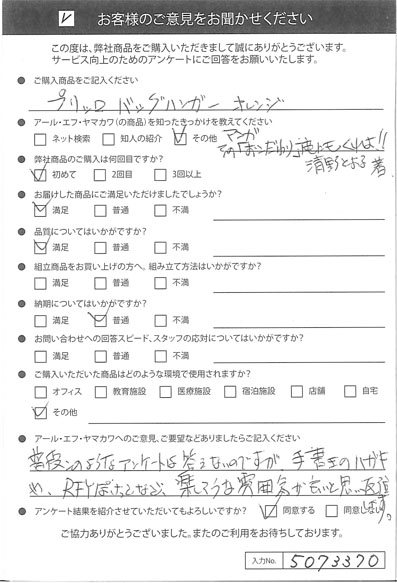 お客様のご意見をお聞かせください
この度は、弊社商品をご購入いただきまして誠にありがとうございます。
サービス向上のためのアンケートにご回答をお願いいたします。
● ご購入商品をご記入ください
ブリッロ バッグハンガー オレンジ
● アール・エフ・ヤマカワ(の商品)を知ったきっかけを教えてください
□ ネット検索 □ 知人の紹介 ☑ その他 マンガ
その「おこだわり」俺にもくれよ!!
清野とおる 著
● 弊社商品のご購入は何回目ですか?
☑ 初めて □ 2回目 □ 3回以上
● お届けした商品にご満足いただけましたでしょうか?
☑ 満足 □ 普通 □ 不満
● 品質についてはいかがですか?
☑ 満足 □ 普通 □ 不満
● 組立商品をお買い上げの方へ。組み立て方法はいかがですか?
□ 満足 □ 普通 □ 不満
● 納期についてはいかがですか?
□ 満足 ☑ 普通 □ 不満
● お問い合わせへの回答スピード、スタッフの応対についてはいかがですか?
□ 満足 □ 普通 □ 不満
● ご購入いただいた商品はどのような環境で使用されますか?
□ オフィス □ 教育施設 □ 医療施設 □ 宿泊施設 □ 店舗 □ 自宅
☑ その他
● アール・エフ・ヤマカワへのご意見、ご要望などありましたらご記入ください
普段このようなアンケートは答えないのですが、手書きのハガキ
や、RFYぽちなど、楽しそうな雰囲気が良いと思い返送
します。
● アンケート結果を紹介させていただいてもよろしいですか? ☑ 同意する □ 同意しない
ご協力ありがとうございました。またのご利用をお待ちしております。
入力No. 5073370